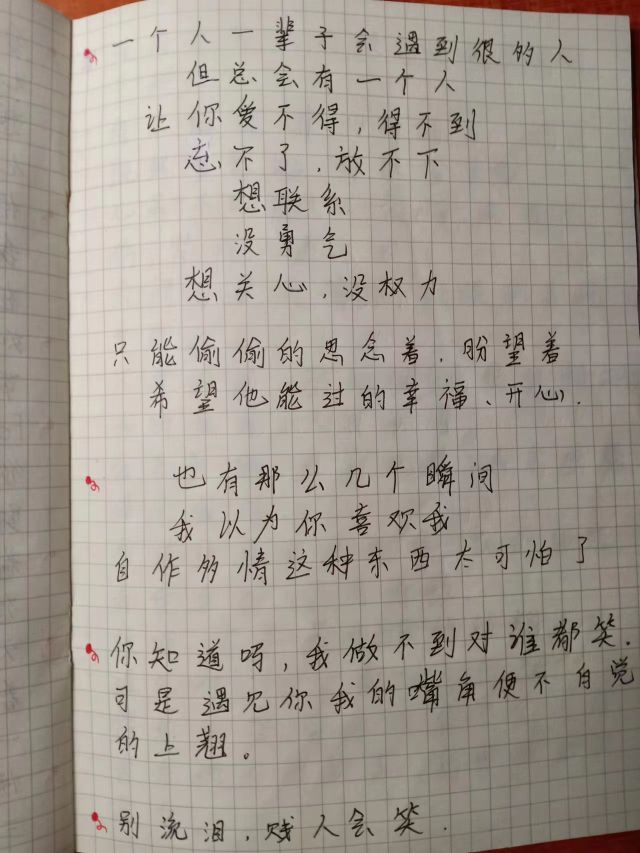 一个人一辈子会遇到很的人
但总会有一个人
让你爱不得,得不到
忘不了,放不下
想联系
没勇气
想关心,没权力
只能偷偷的思念着,盼望着
希望他能过的幸福、开心.
也有那么几个瞬间
我以为你喜欢我
自作多情这种东西太可怕了
你知道吗,我做不到对谁都笑.
可是遇见你我的嘴角便不自觉
的上翘。
别流泪,贱人会笑.